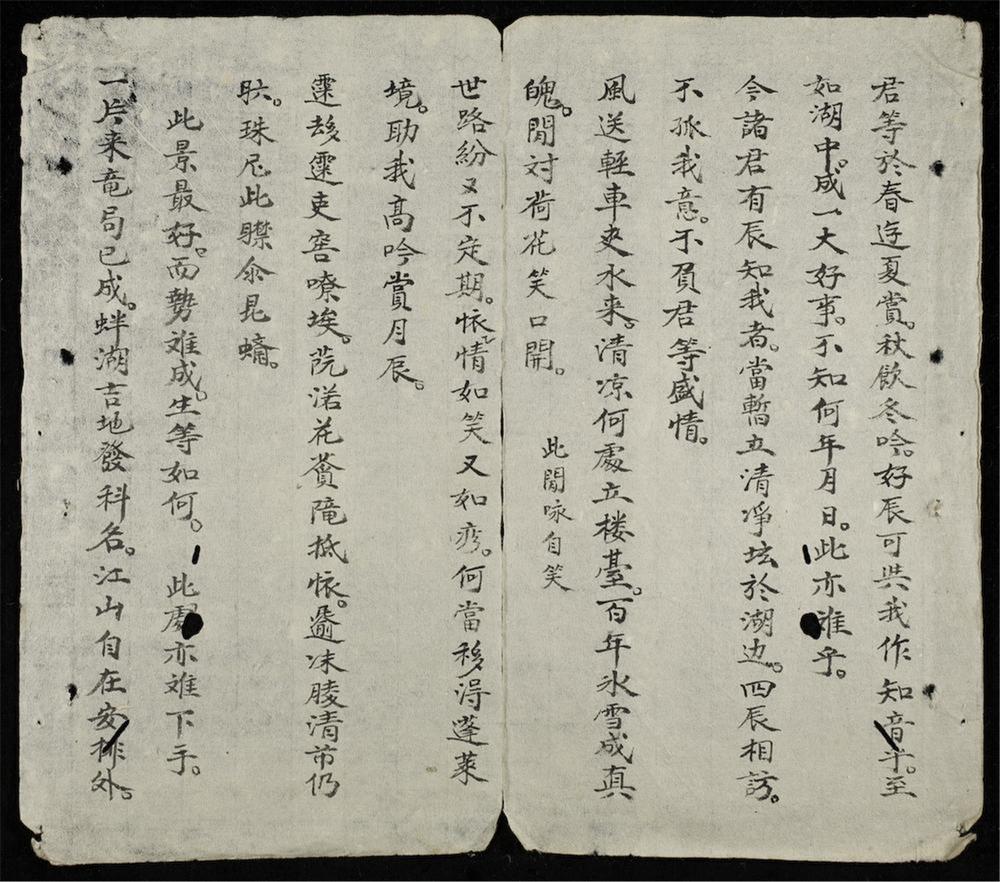 君等於春遊夏賞。秋飲冬吟。好辰可與我作知音乎。至
如湖中。成一大好事。不知何年月日。此亦难乎。
今諸君有辰知我者。當暫立清淨坛於湖边。四辰相訪。
不孤我意。不負君等盛情。
風送輕車吏水来。清凉何處立楼臺。百年氷雪成真
魄。閒対荷花笑口開。
此閒咏自笑
世路紛又不定期。怀情如笑又如。何當移得蓬莱
境。助我高吟賞月辰。
霊霊吏窖嘹埃。苊渃花抵怀。清苇仍
珠尼此昆。
此景最好。而勢难成。生等如何。此處亦难下手。
一片来竜局已成。蚌湖吉地發科名。江山自在安排外。